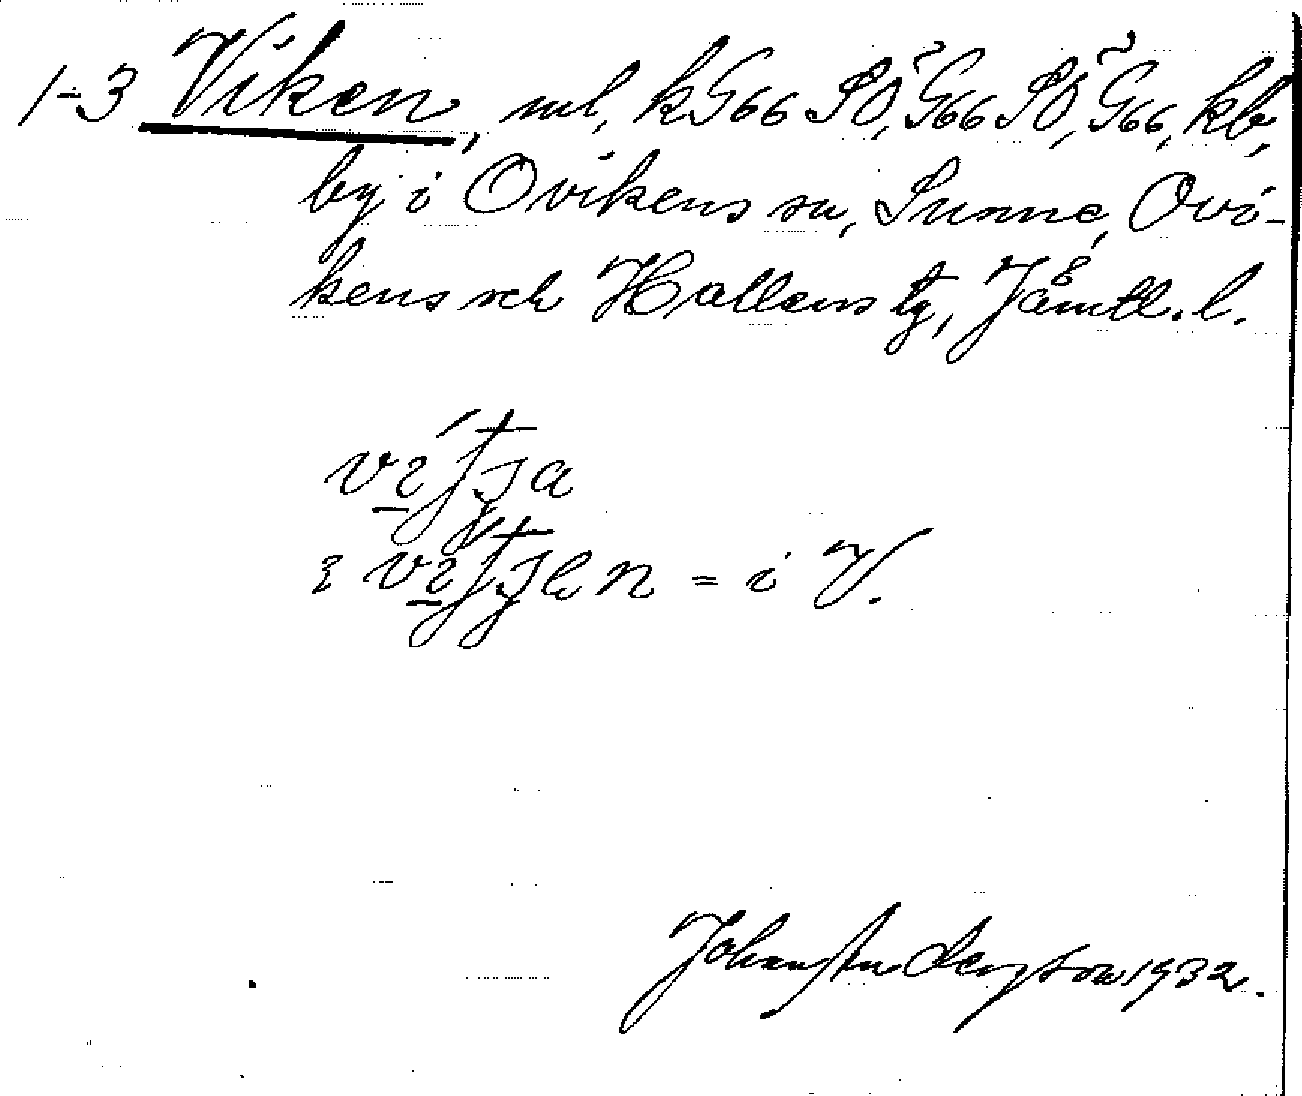 1-3 Viken, ml, kG66 SÖ, G66 SÖ, G66, kb,
by i Ovikens sn, Sunne, Ovi-
kens och Hallens tg, Jämtl. l.
= i V.
Johan Anderson 1932.